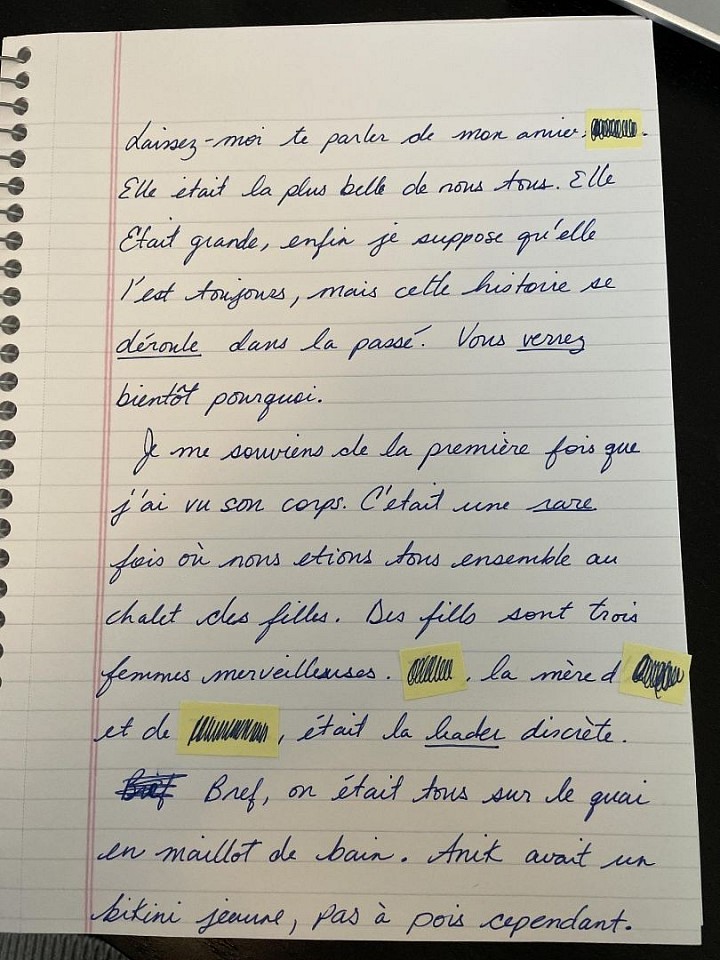 Laissez-moi te parler de mon amie.
Elle était la plus belle de nous tous. Elle
Était grande, enfin je suppose qu'elle
l'est toujours, mais cette histoire se
déroule dans la passé. Vous verrez
bientôt pourquoi.
Je me souviens de la première fois que
j'ai vu son corps. C'était une rare
fois où nous etions tous ensemble au
chalet des filles. Des fills sont trois
femmes merveilleuses. , la mère d
et de , était la leader discrète.
Bref, on était tous sur le quai
en maillot de bain. Anik avait un
bikini jeaune, pas à pois cependant.